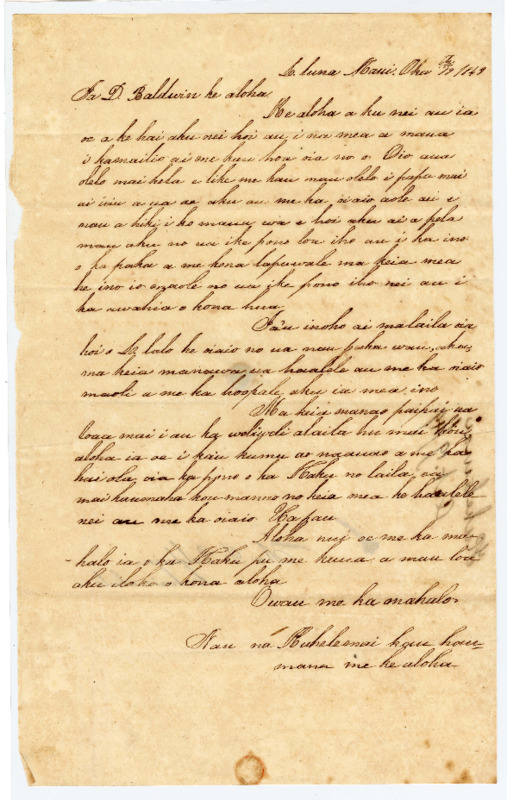 L. luna Maui. Oku 19 1843
Ia D. Baldwin ke aloha
Ke aloha a ku nei au ia
oe a ke hai aku nei hoi au, i na mea a maua
i kamailio ai me kuu hoa oia no o Dio ana
olelo mai kela e like me kau mau olelo i papa mai
ai iau a ua ae aku au me ka oiaio aole au e
nau a hiki i ko mauu wa e hoi aku ai a pela
mau aku no ua ike pono loa iho au i ka ino
o ka paka a me kona lapuwale ma keia mea
he ino io no ua ike pono iho nei au i
ka awahia o kona hua
I au i noho ai malaila oia
hoi o L. lalo he oiaio no ua nau paka wau, aka,
ma keia manawa ua haalele au me ka oiaio
maoli a me ka hoopale aku ia mea ino
Ma keia manao
loaa mai i au ka alaila hu mai kou
aloha ia oe i kuu kumu ao naauao a me ka
hai ola, oia ka pono o ka Haku no laila, ea
mai kou manao no keia mea ke haalele
nei au me ka oiaio
Aloha nui oe me ka ma-
halo ia o ka Haku pu me kaua a mau loa
aku iloko o kona aloha
Owau me ka mahalo
Nau na Kuheleemai kau hau-
mana me ke aloha